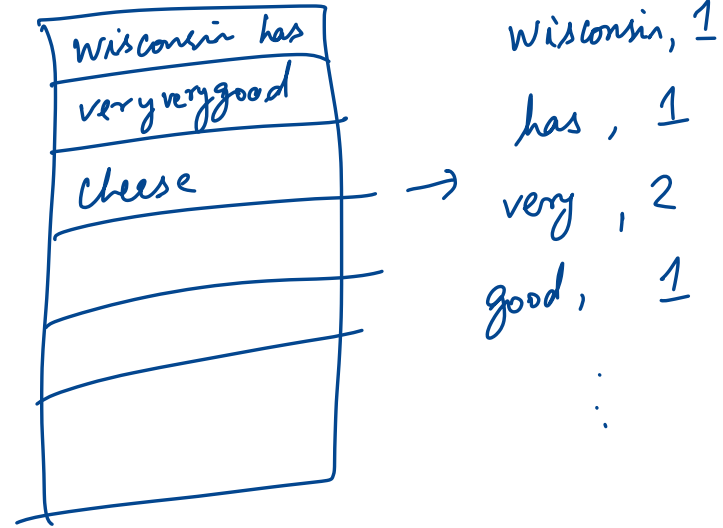 Wisconsin has
very very good
cheese
→
Wisconsin, 1
has, 1
very, 2
good, 1
⋮